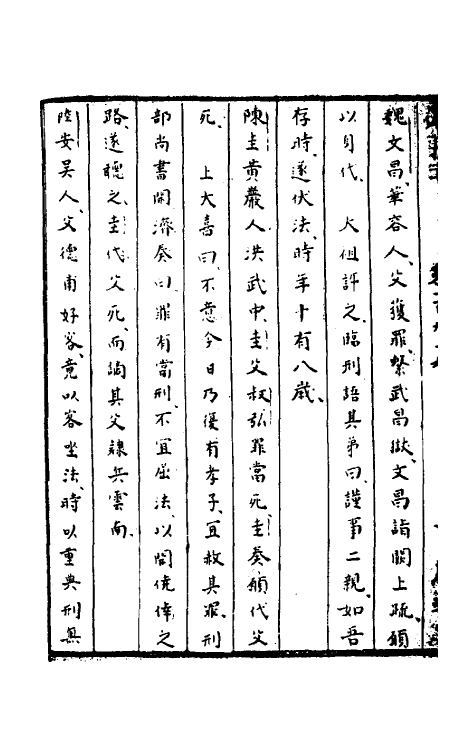 魏文昌、華容人、父獲罪、繫武昌獄、文昌詣闕上疏、願
以身代、　太祖許之、臨刑語其弟曰、謹事二親、如吾
存時、遂伏法、時年十有八歲、
陳圭黃巖人、洪武中、圭父叔弘罪當死、圭奏願代父
死、　上大喜曰、不意今日乃復有孝子、宜赦其罪、刑
部尚書開濟奏曰、罪有當刑、不宜屈法、以開僥倖之
路、遂聽之、圭代父死、而謫其父隸兵雲南、
陸安吳人、父德甫好客、竟以客坐法、時以重典刑無